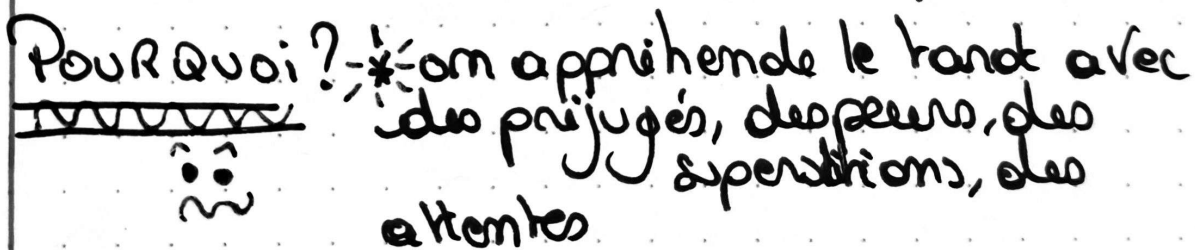 POURQUOI? * on appréhende le tarot avec
des préjugés, des peurs, des
superstitions, des
attentes